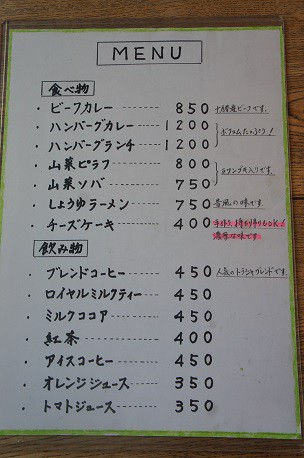 MENU
食べ物
・ビーフカレー------- 850 十勝産ビーフです。
・ハンバーグカレー--- 1200
・ハンバーグランチ--- 1200 ボリュームたっぷり!
・山菜ピラフ-------- 800
・山菜ソバ--------- 750 入りです。
・しょうゆラーメン---- 750 昔風の味です。
・チーズケーキ------ 400 手作り、持ち帰りもOK!
濃厚な味です。
飲み物
・ブレンドコーヒー---- 450 人気のトラジャブレンドです。
・ロイヤルミルクティー-- 450
・ミルクココア------- 450
・紅茶------------ 400
・アイスコーヒー------ 450
・オレンジジュース---- 350
・トマトジュース------ 350